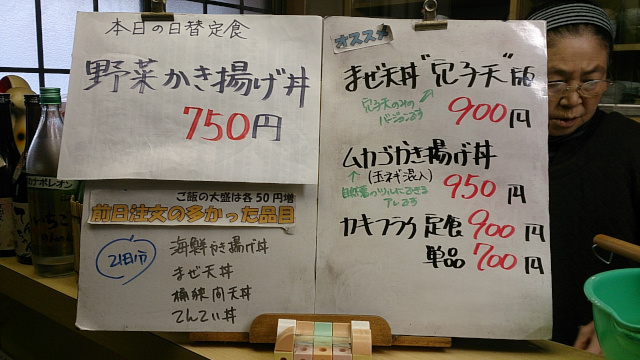 本日の日替定食
野菜かき揚げ丼
750円
ご飯の大盛は各50円増
前日注文の多かった品目
21日(力)
海鮮かき揚げ丼
まぜ天丼
桶狭間天丼
てんてい丼
オススメ
まぜ天丼"穴子天"版
穴子天のみの
バージョンです
900円
ムカゴかき揚げ丼
(玉ネギ混入)
950円
自然薯のツルにできる
アレです
カキフライ定食 900円
単品 700円
ナポレオン